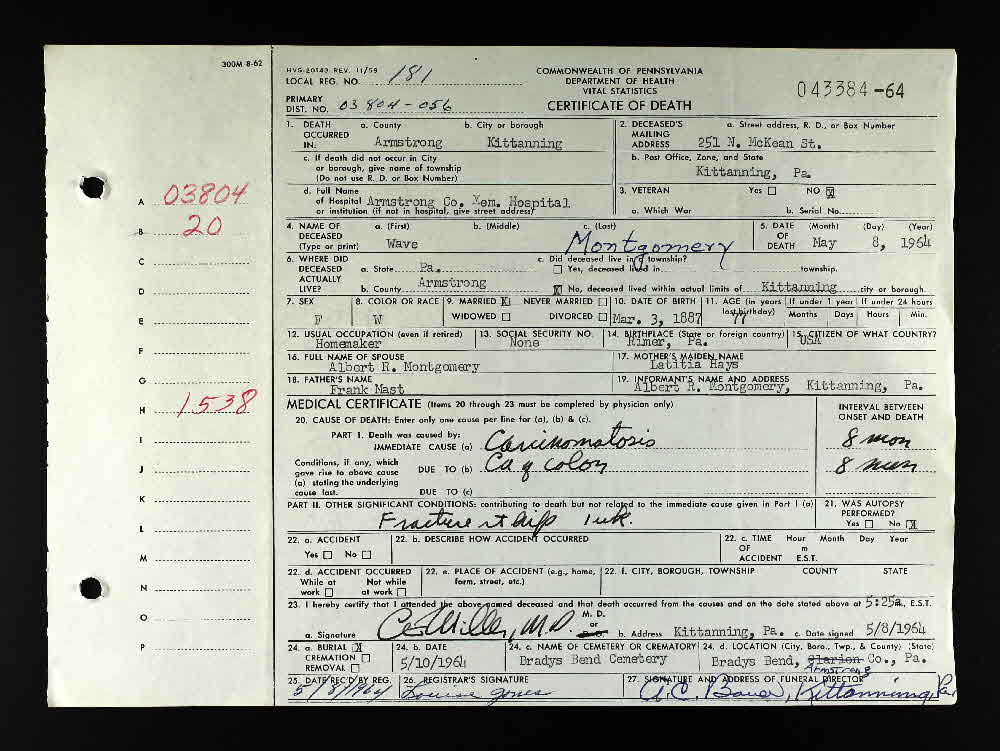 300M 8-62
HVS-20143 REV. 11/59
LOCAL REG. NO. 181
COMMONWEALTH OF PENNSYLVANIA
DEPARTMENT OF HEALTH
VITAL STATISTICS
CERTIFICATE OF DEATH
043384-64
PRIMARY
DIST. NO. 03804-056
1. DEATH OCCURRED IN: a. County Armstrong b. City or borough Kittanning
2. DECEASED'S MAILING ADDRESS a. Street address, R. D., or Box Number 251 N. McKean St.
c. If death did not occur in City or borough, give name of township (Do not use R. D. or Box Number)
b. Post Office, Zone, and State Kittanning, Pa.
d. Full Name of Hospital or institution (if not in hospital, give street address) Armstrong Co. Mem. Hospital
3. VETERAN Yes NO X
a. Which War b. Serial No.
4. NAME OF DECEASED (Type or print) a. (First) Wave b. (Middle) c. (Last) Montgomery
5. DATE OF DEATH (Month) (Day) (Year) May 8, 1964
6. WHERE DID DECEASED ACTUALLY LIVE? a. State Pa. b. County Armstrong
c. Did deceased live in township?
Yes, deceased lived in township.
X No, deceased lived within actual limits of Kittanning city or borough.
7. SEX F
8. COLOR OR RACE W
9. MARRIED X NEVER MARRIED WIDOWED DIVORCED
10. DATE OF BIRTH Mar. 3, 1887
11. AGE (in years last birthday) 77 If under 1 year Months Days If under 24 hours Hours Min.
12. USUAL OCCUPATION (even if retired) Homemaker
13. SOCIAL SECURITY NO. None
14. BIRTHPLACE (State or foreign country) Rimer, Pa.
15. CITIZEN OF WHAT COUNTRY? USA
16. FULL NAME OF SPOUSE Albert R. Montgomery
17. MOTHER'S MAIDEN NAME Latitia Hays
18. FATHER'S NAME Frank Mast
19. INFORMANT'S NAME AND ADDRESS Albert R. Montgomery, Kittanning, Pa.
MEDICAL CERTIFICATE (Items 20 through 23 must be completed by physician only)
INTERVAL BETWEEN ONSET AND DEATH
20. CAUSE OF DEATH: Enter only one cause per line for (a), (b) & (c).
PART I. Death was caused by:
IMMEDIATE CAUSE (a) Carcinomatosis 8 mon
Conditions, if any, which gave rise to above cause (a) stating the underlying cause last.
DUE TO (b) Ca of colon 8 mon
DUE TO (c)
PART II. OTHER SIGNIFICANT CONDITIONS: contributing to death but not related to the immediate cause given in Part I (a)
Fracture rt hip 1 wk.
21. WAS AUTOPSY PERFORMED? Yes No X
22. a. ACCIDENT Yes No
22. b. DESCRIBE HOW ACCIDENT OCCURRED
22. c. TIME OF ACCIDENT Hour Month Day Year m E.S.T.
22. d. ACCIDENT OCCURRED While at work Not while at work
22. e. PLACE OF ACCIDENT (e.g., home, farm, street, etc.)
22. f. CITY, BOROUGH, TOWNSHIP COUNTY STATE
23. I hereby certify that I attended the above named deceased and that death occurred from the causes and on the date stated above at 5:25a.m., E.S.T.
a. Signature Miller, M.D. M. D. or D. O. b. Address Kittanning, Pa. c. Date signed 5/8/1964
24. a. BURIAL X CREMATION REMOVAL
24. b. DATE 5/10/1964
24. c. NAME OF CEMETERY OR CREMATORY Bradys Bend Cemetery
24. d. LOCATION (City, Boro., Twp., & County) (State) Bradys Bend, Clarion Co., Pa.
Armstrong
25. DATE REC'D BY REG. 5/8/1964
26. REGISTRAR'S SIGNATURE Louise Jones
27. SIGNATURE AND ADDRESS OF FUNERAL DIRECTOR A.C. Bauer, Kittanning, Pa
A 03804
B 20
C
D
E
F
G
H 1538
I
J
K
L
M
N
O
P